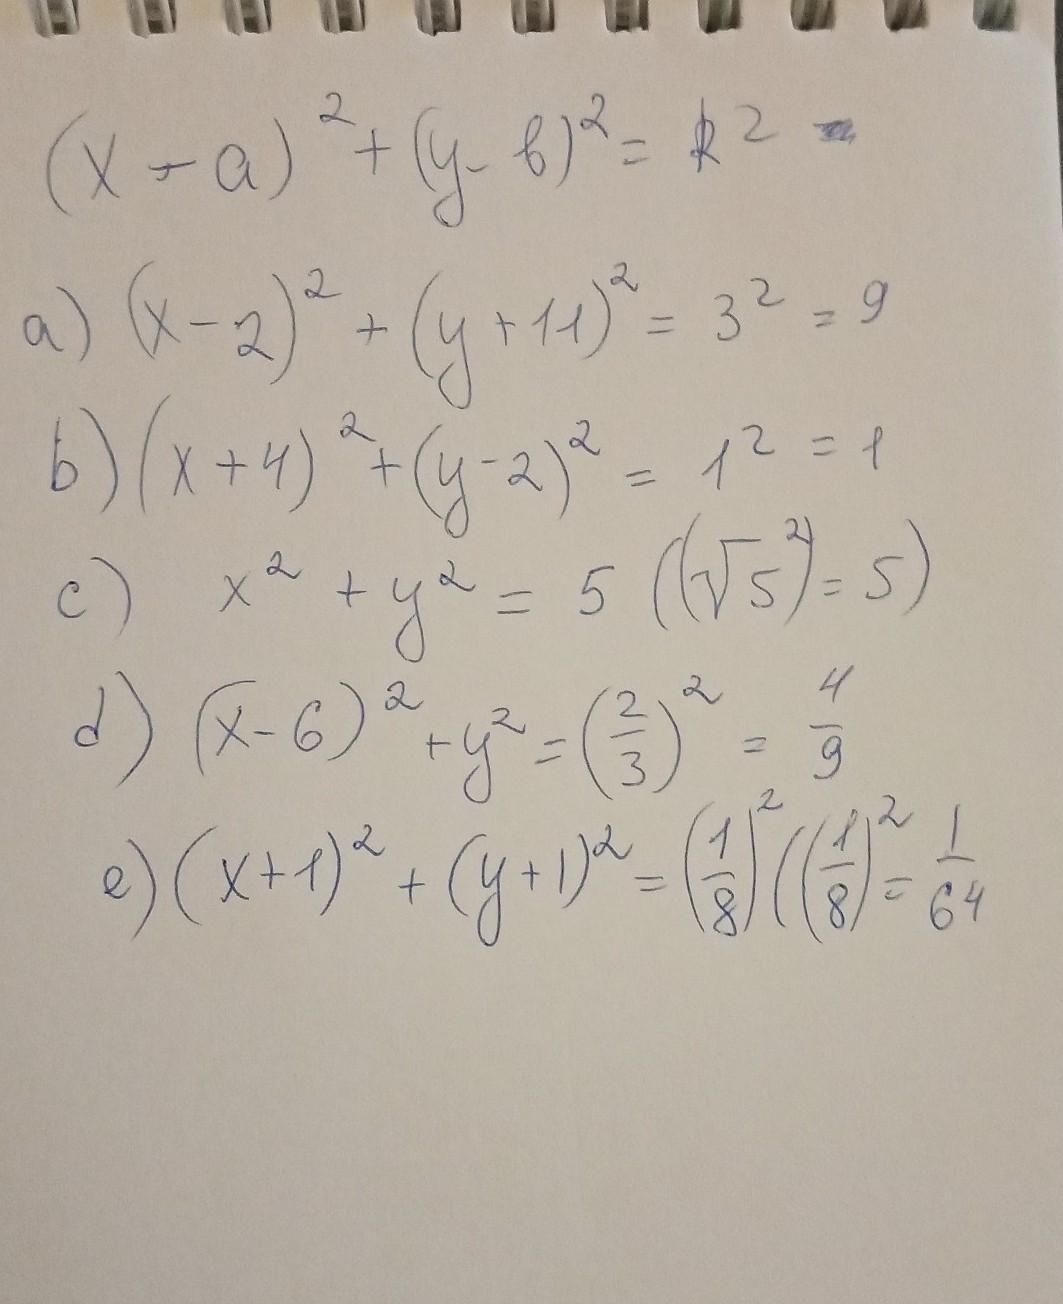 (x - a)² + (y - b)² = R²
a) (x - 2)² + (y + 11)² = 3² = 9
b) (x + 4)² + (y - 2)² = 1² = 1
c) x² + y² = 5 ((√5)² = 5)
d) (x - 6)² + y² = (2/3)² = 4/9
e) (x + 1)² + (y + 1)² = (1/8)² ((1/8)² = 1/64